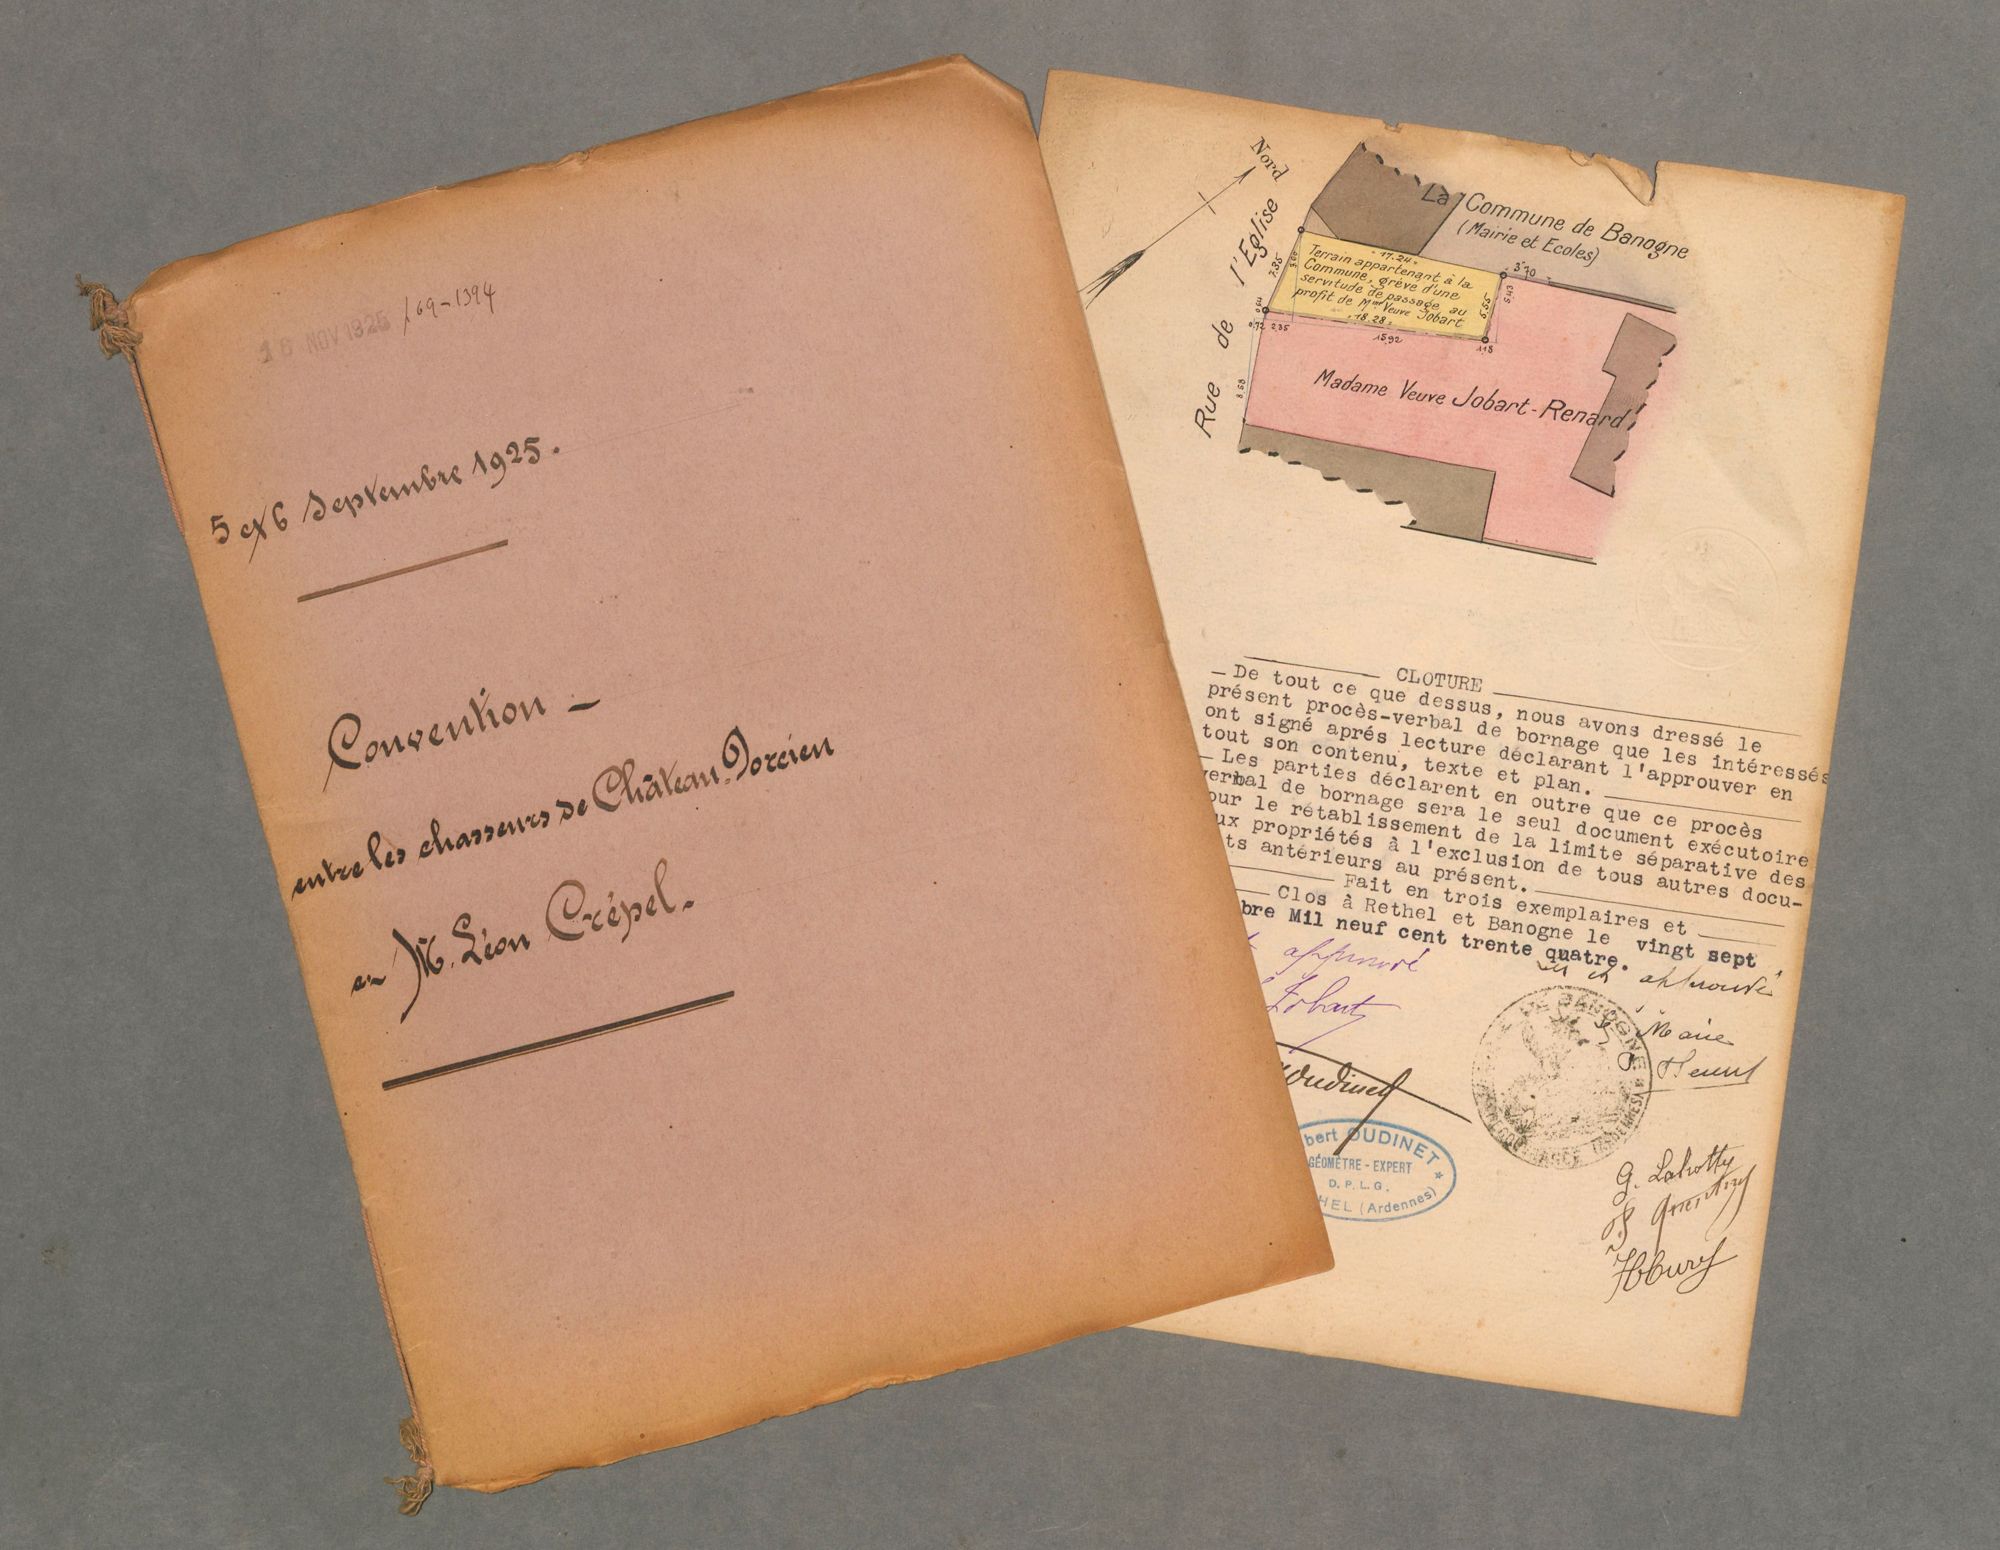 16 NOV 1925
169-1394
5 et 6 Septembre 1925.
Convention -
entre les chasseurs de Château-Porcien
et M. Léon Crépel.
Nord
Rue de l'Eglise
La Commune de Banogne
(Mairie et Ecoles)
17.24
Terrain appartenant à la
Commune, grévé d'une
servitude de passage au
profit de Mme Veuve Jobart
18.28
3.70
5.43
5.55
7.35
0.72 2.35
15.92
1.18
8.58
Madame Veuve Jobart-Renard
CLOTURE
— De tout ce que dessus, nous avons dressé le
présent procès-verbal de bornage que les intéressés
ont signé aprés lecture déclarant l'approuver en
tout son contenu, texte et plan.
— Les parties déclarent en outre que ce procès
verbal de bornage sera le seul document exécutoire
our le rétablissement de la limite séparative des
ux propriétés à l'exclusion de tous autres docu-
ts antérieurs au présent.
Fait en trois exemplaires et
Clos à Rethel et Banogne le vingt sept
bre Mil neuf cent trente quatre.
approuvé
Jobart
Lu et approuvé
le Maire
Oudinet
bert OUDINET
GÉOMÈTRE-EXPERT
D.P.L.G.
HEL (Ardennes)
DE BANOGNE
(ARDENNES)
G. Lahotte